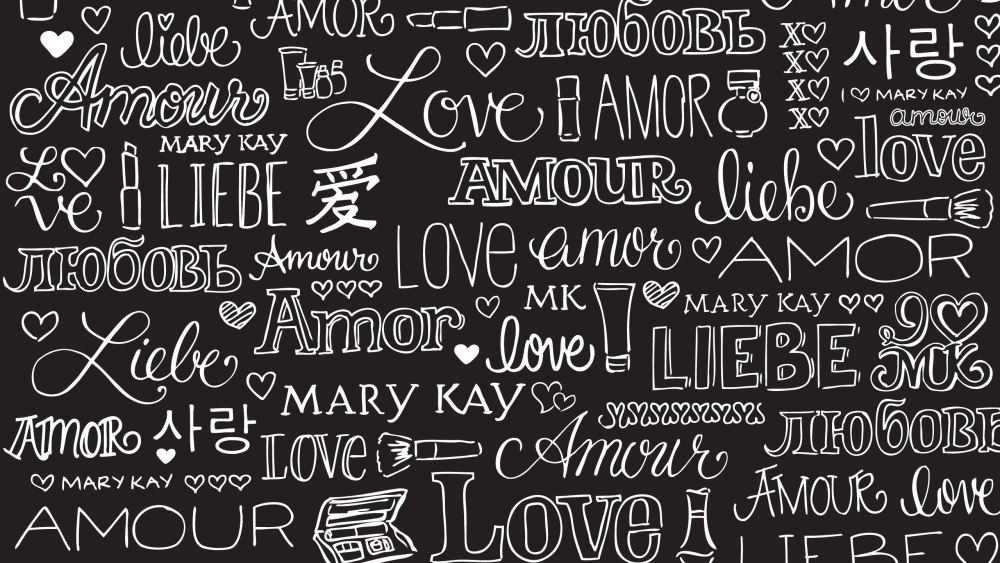 AMOR
ЛЮБОВЬ
liebe
Love
AMOR
X♡
X♡
X♡
X♡
사랑
I ♡ MARY KAY
amour
Amour
MARY KAY
Love
LIEBE
愛
AMOUR
liebe
love
ЛЮБОВЬ
Amour
LOVE
amor
AMOR
MK
MARY KAY
Liebe
Amor
love
LIEBE
9♡
MK
MARY KAY
AMOR
사랑
LOVE
Amour
ЛЮБОВЬ
MARY KAY
AMOUR
love
AMOUR
Love
LIEBE